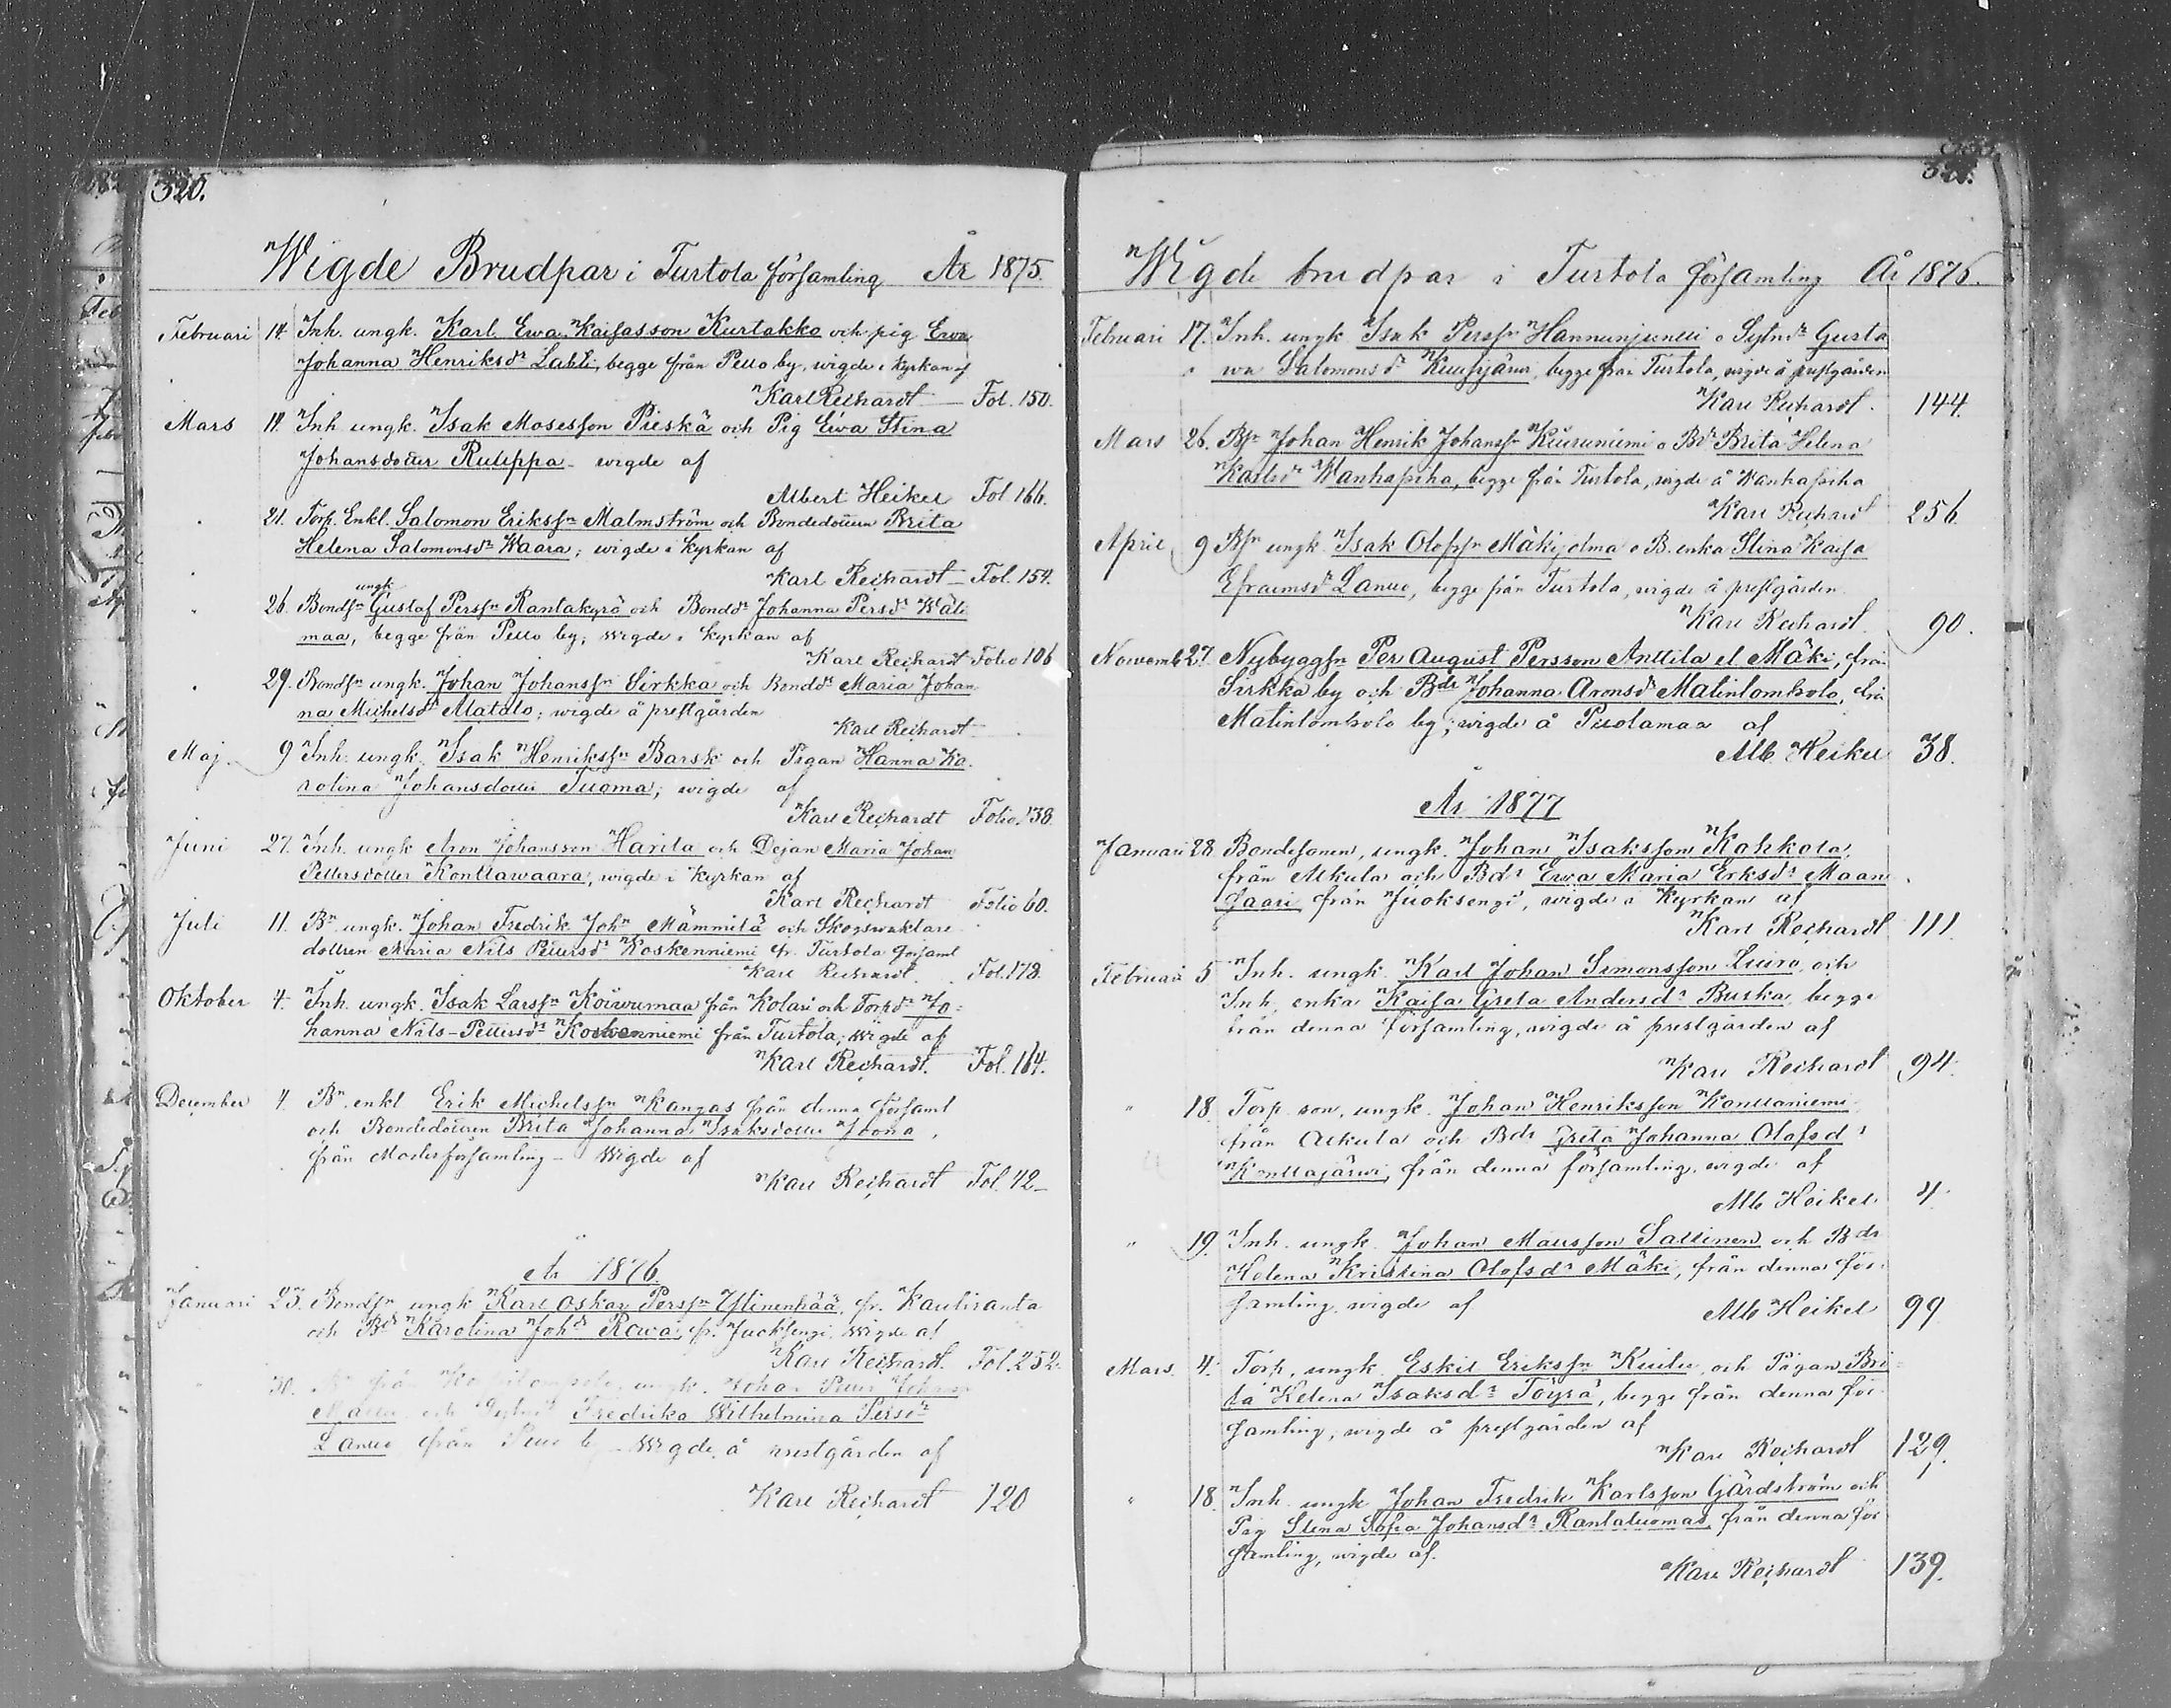 320.
Wigde Brudpar i Turtola församling År 1875.
Februari 14. Inh. ungk. Karl Ewa Kaisasson Kurtakko och pig Ewa
Johanna Henriksdr Lahti, begge från Pello by, wigde i Kyrkan af
Karl Reichardt — Fol. 150.
Mars Inh ungk. Isak Mosesson Pieskä och Pig Ewa Stina
Johansdotter Ruleppa - wigde af
Albert Heikel Fol 166.
21. Torp. Enkl. Salomon Erikssn Malmström och Bondedottern Brita
Helena Salomonsdr Waara; wigde i Kyrkan af
Karl Reichardt — Fol. 154.
ungk
26. Bondsn Gustaf Perssn Rantakyrö och Bonddr Johanna Persdr Wäli
maa, begge från Pello by; wigde i kyrkan af
Karl Reichardt Folio 106
29. Bondsn ungk. Johan Johanssn Sirkka och Bonddr Maria Johan
na Michelsdr Alatalo; wigde å prestgården
Karl Reichardt
Maj. 9 Inh. ungk. Isak Henrikssn Barsk och Pigan Hanna Ka
rolina Johansdotter Tuoma; wigde af
Karl Reichardt Folio 138.
Juni 27. Inh. ungk Aron Johansson Harila och Dejan Maria Johan
Pettersdotter Konttawaara, wigde i Kyrkan af
Karl Reichardt Folio 60.
Juli 11. Bn ungk. Johan Fredrik John Mämmilä och Skogswaktare
dottren Maria Nils Pettersdr Koskenniemi fr. Turtola församl
Karl Reichardt. Fol. 178.
Oktober 4. Inh. ungk. Isak Larssn Koiwumaa från Kolari och Torpdr Jo=
hanna Nils-Pettersdr Koskenniemi från Turtola; wigde af
Karl Reichardt. Fol. 164.
December 4. Bn. enkl Erik Michelssn Kangas från denna församl
och Bondedottren Brita Johanna Isaksdotter Joona,
från Moderförsamling - Wigde af
Karl Reichardt Fol. 42 -
År 1876.
Januari 23. Bondsn. ungk Karl Oskar Perssn Ylinenpää, fr. Kauliranta
och Bdr Karolina Johdr Rowa, fr. Juoksengi. Wigde af
Karl Reichardt. Fol. 252.
30. från ungk. Johan Petter
och Fredrika Wilhelmina Persdr
Lanuo från Pello by - Wigde å prestgården af
Karl Reichardt 120
321.
Wigde brudpar i Turtola församling År 1876.
Februari 17. Inh. ungk Isak Perssn Hannunjunui o Sytndr Gusta
wa Salomonsdr Kuusijärwi, begge från Turtola, wigde å prestgården
Karl Reichardt. 144.
Mars 26. Bsn Johan Henrik Johanssn Kiuruniemi o Bdr Brita Helena
Karlsdr Wanhapiha, begge från Turtola, wigde å Wanhapiha
Karl Reichard 256.
April 9 Bsn ungk. Isak Olofssn Mäkijolma o B. enka Stina Kaisa
Efraimsdr Lanuo, begge från Turtola, wigde å prestgården.
Karl Reichardt. 90.
Novemb 27. Nybyggsn Per August Persson Anttila el Mäki, från
Sirkka by och Bdr Johanna Aronsdr Matinlombolo, från
Matinlombolo by; wigde å af
Alb Heikel 38.
År 1877
Januari 28 Bondesonen, ungk. Johan Isaksson Kahkola,
från Alkula och Bdr Ewa Maria Erksdr Maan
saari från Juoksengi, wigde i Kyrkan af
Karl Reichardt 111.
Februari 5 Inh. ungk. Karl Johan Simonsson Luiro, och
Inh. enka Kaisa Greta Andersdr Buska, begge
från denna församling, wigde å prestgården af
Karl Reichardt 94.
" 18 Torp. son, ungk. Johan Henriksson Konttaniemi
från Alkula och Bdr Greta Johanna Olofsdr
Konttajärwi, från denna församling, wigde af
Alb Heikel 4.
" 19. Inh. ungk. Johan Matsson Sallinen och Bdr
Helena Kristina Olofsdr Mäki, från denna för-
samling, wigde af Alb Heikel 99
Mars. 4. Torp, ungk. Eskil Erikssn Kuitu, och Pigan Bri=
ta Helena Isaksdr Töyrä, begge från denna för-
samling, wigde å prestgården af
Karl Reichardt 129.
" 18. Inh. ungk Johan Fredrik Karlsson Gärdström och
Pig Stina Sofia Johansdr Rantatuomas, från denna för
samling, wigde af.
Karl Reichardt 139.